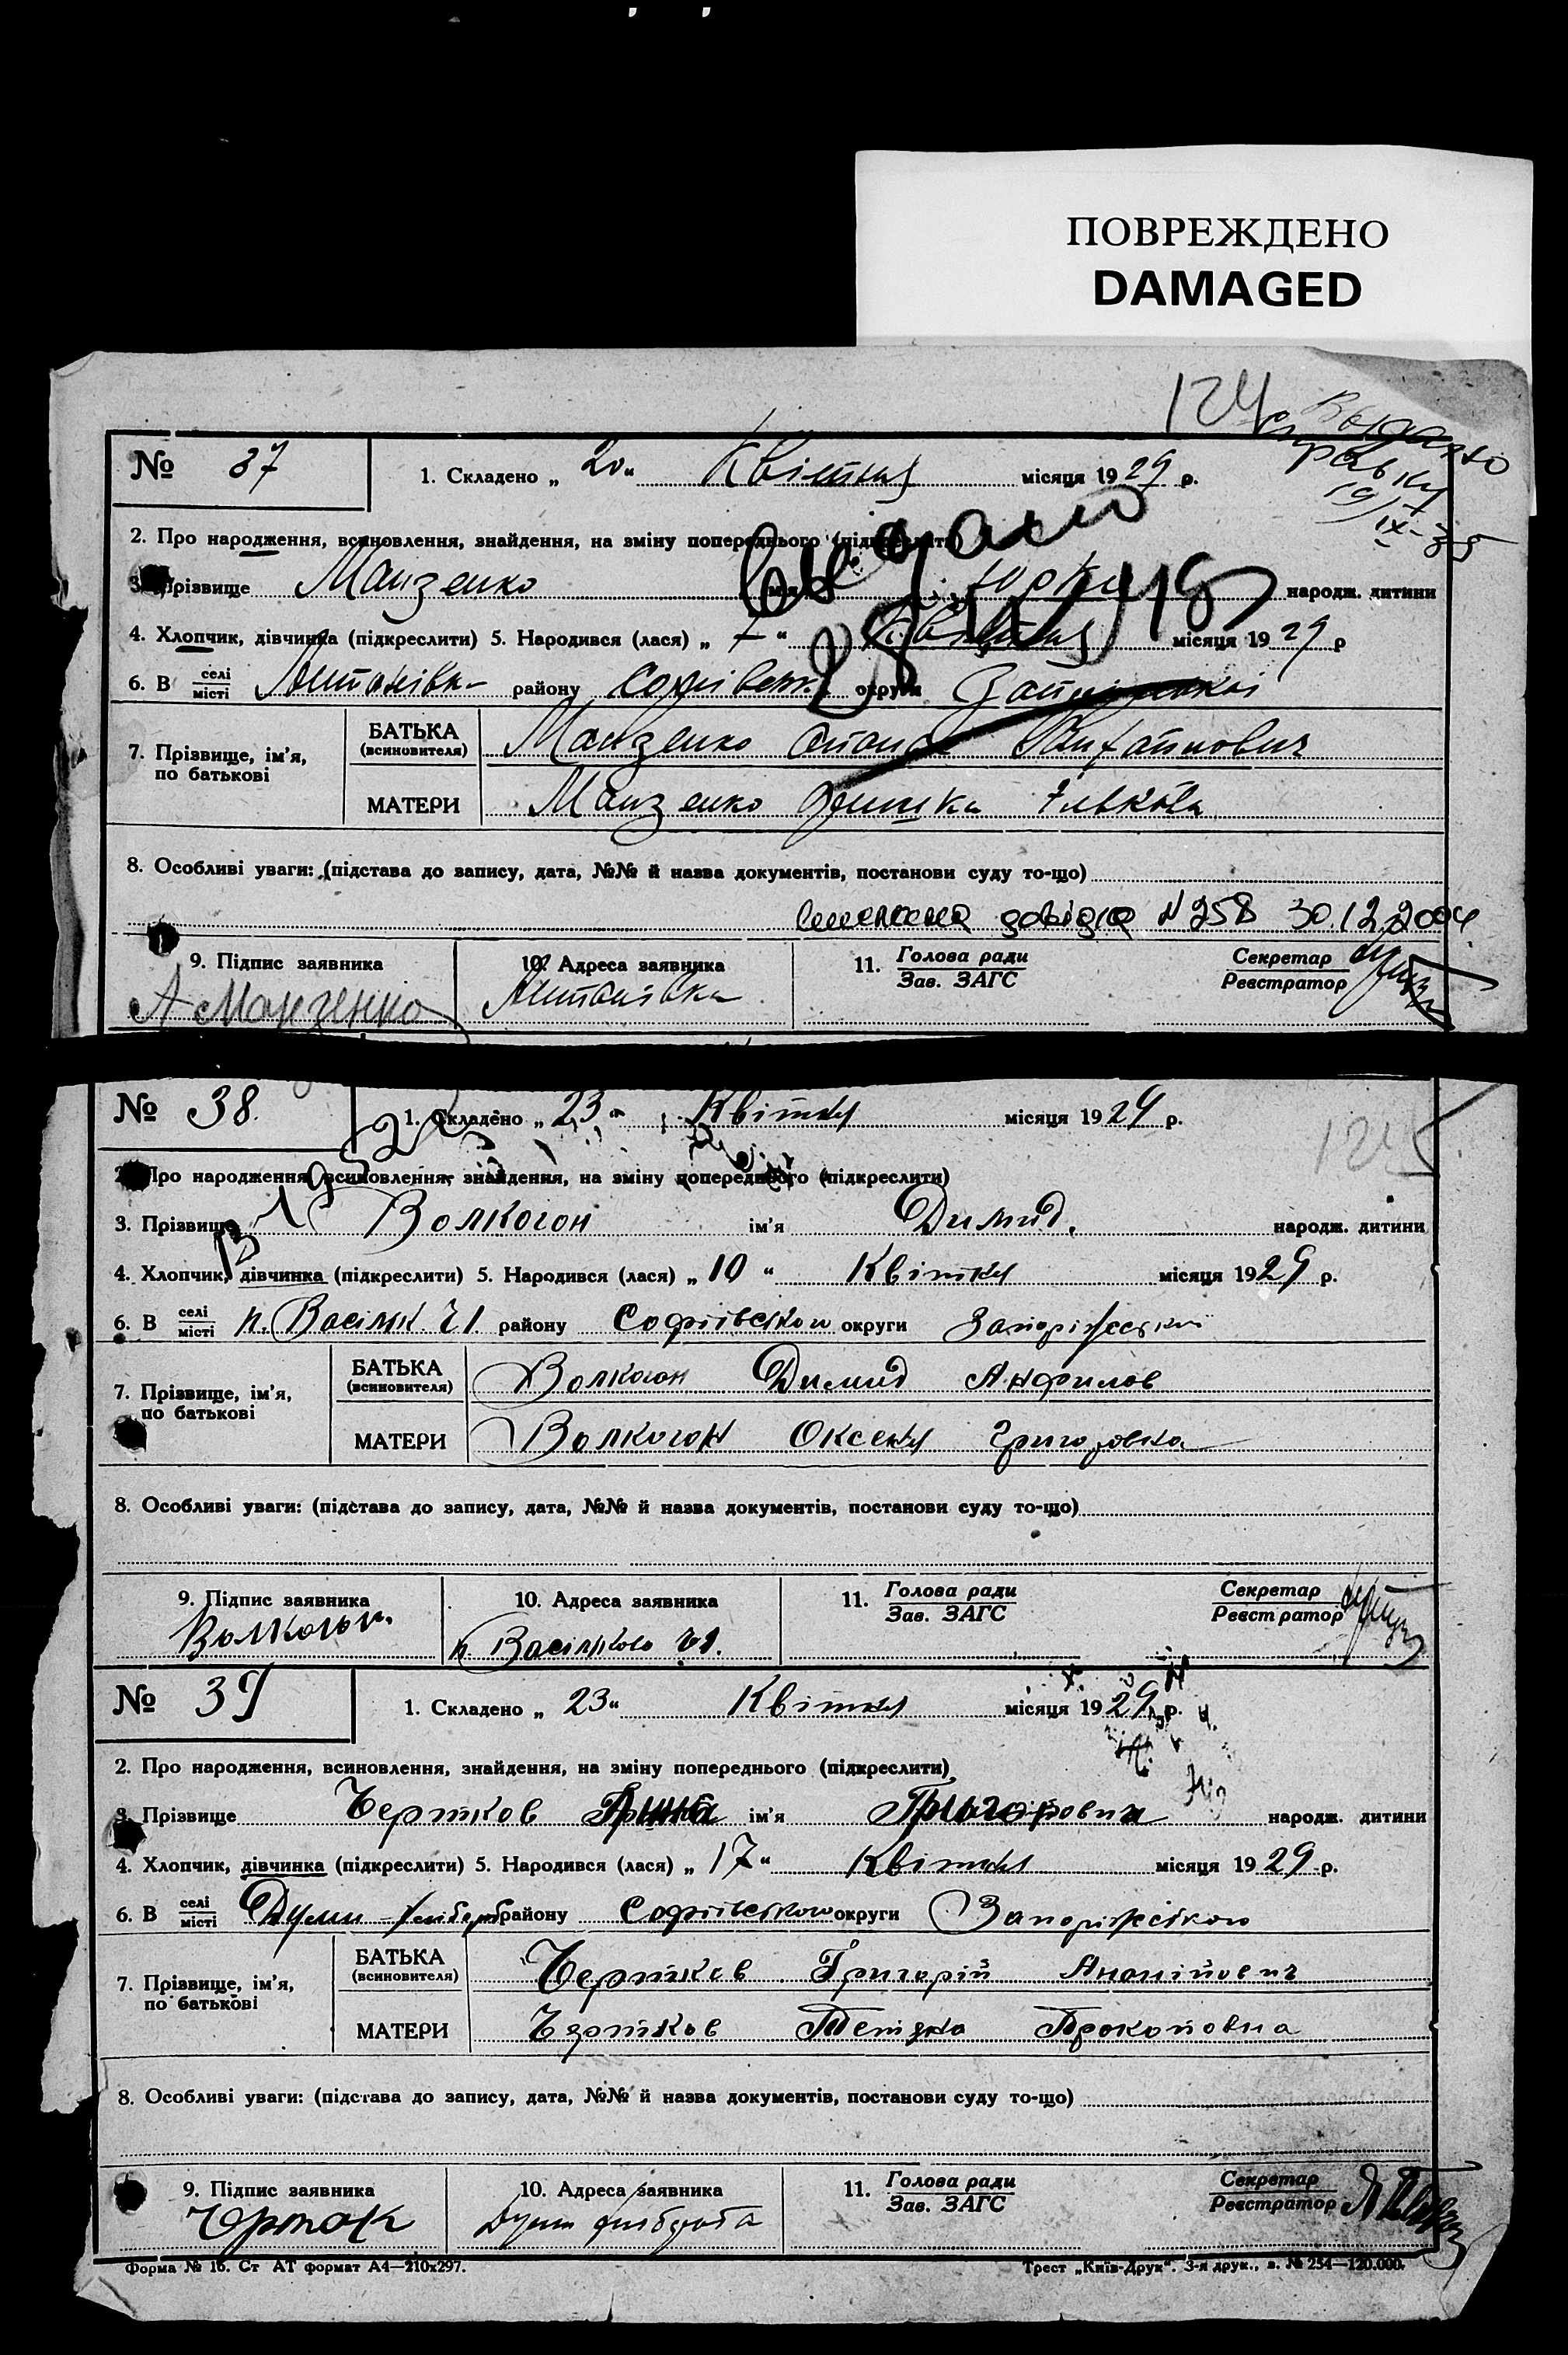 ПОВРЕЖДЕНО
DAMAGED
124
Выдано
справку
19/IX-35
№ 37
1. Складено „ 20 “ Квітня місяця 1929 р.
2. Про народження, всиновлення, знайдення, на зміну попереднього (підкреслити)
выдано
3. Прізвище Манзенко ім'я Юрко народж. дитини
4. Хлопчик, дівчинка (підкреслити) 5. Народився (лася) „ “ Квітня місяця 1929 р
6. В селі/місті району Софіївськ. округи
7. Прізвище, ім'я, по батькові
БАТЬКА (всиновителя) Манзенко
МАТЕРИ Манзенко
8. Особливі уваги: (підстава до запису, дата, №№ й назва документів, постанови суду то-що)
довідка N 258 30.12.2004
9. Підпис заявника
10. Адреса заявника
11. Голова ради
Зав. ЗАГС
Секретар
Реєстратор
А Манзенко
№ 38.
1. Складено „ 23 “ Квітня місяця 1929 р.
125
2. Про народження, всиновлення, знайдення, на зміну попереднього (підкреслити)
3. Прізвище Волкогон ім'я Димид. народж. дитини
4. Хлопчик, дівчинка (підкреслити) 5. Народився (лася) „ 10 “ Квітня місяця 1929 р.
6. В селі/місті п. Васильк. Ч1 району Софіївського округи Запоріжської
7. Прізвище, ім'я, по батькові
БАТЬКА (всиновителя) Волкогон Димид Анфилов
МАТЕРИ Волкогон Оксеня Григоровна
8. Особливі уваги: (підстава до запису, дата, №№ й назва документів, постанови суду то-що)
9. Підпис заявника
10. Адреса заявника
11. Голова ради
Зав. ЗАГС
Секретар
Реєстратор
Волкогон.
п. Васілково Ч1.
№ 39
1. Складено „ 23 “ Квітня місяця 1929 р.
2. Про народження, всиновлення, знайдення, на зміну попереднього (підкреслити)
3. Прізвище Чертков ім'я Григорович народж. дитини
4. Хлопчик, дівчинка (підкреслити) 5. Народився (лася) „ 17 “ Квітня місяця 1929 р.
6. В селі/місті району Софіївського округи Запоріжського
7. Прізвище, ім'я, по батькові
БАТЬКА (всиновителя) Чертков Григорій Ананійович
МАТЕРИ Чертков Тетяна Прокоповна
8. Особливі уваги: (підстава до запису, дата, №№ й назва документів, постанови суду то-що)
9. Підпис заявника
10. Адреса заявника
11. Голова ради
Зав. ЗАГС
Секретар
Реєстратор
Чрток
Форма № 16. Ст АТ формат А4—210x297.
Трест „Київ-Друк“. 3-я друк., з. № 254—120.000.